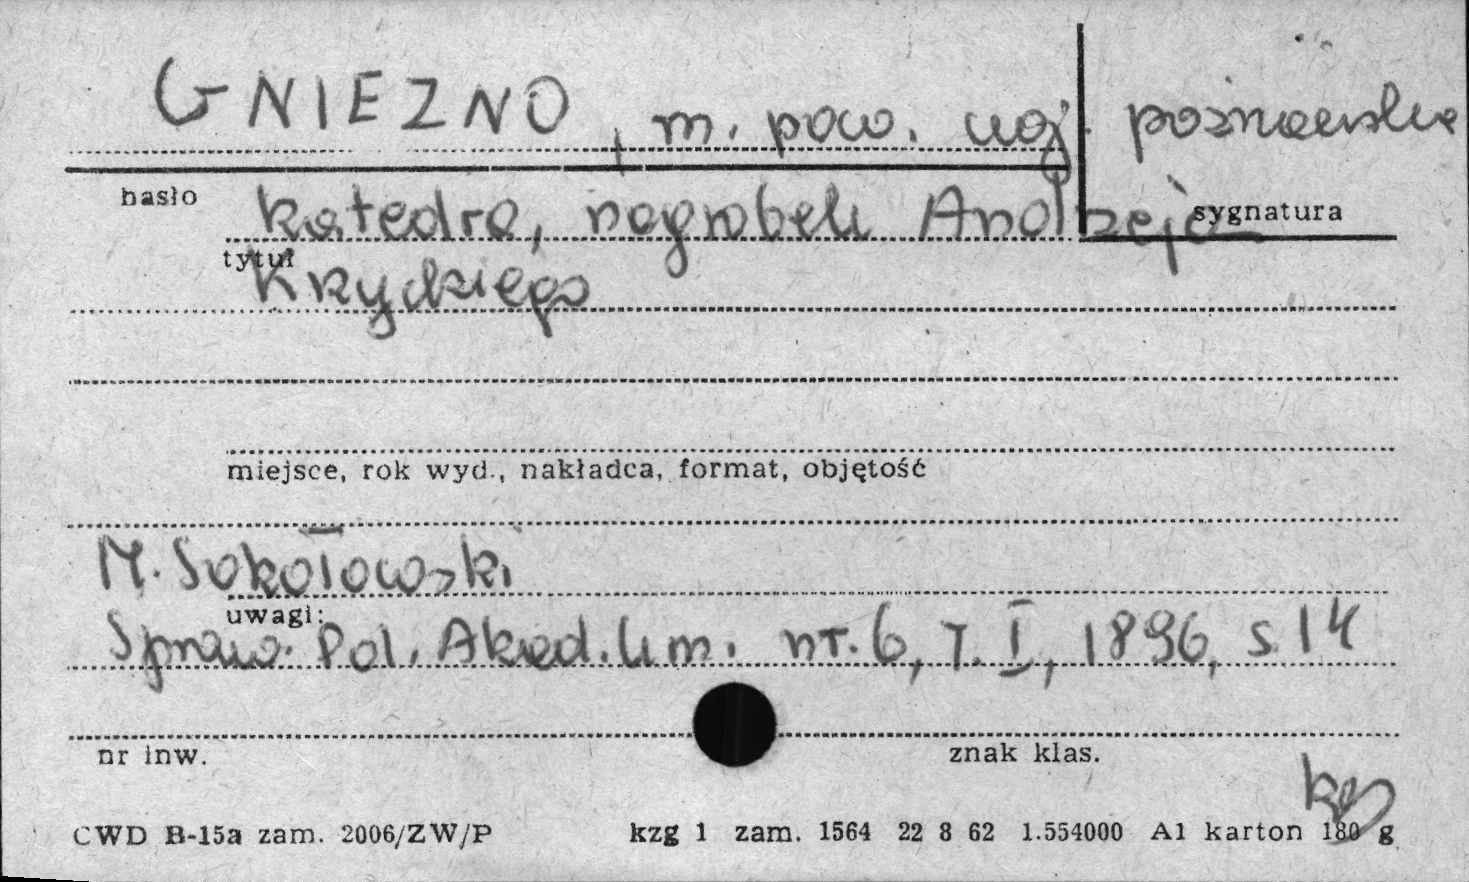 GNIEZNO, m. pow. woj. poznańskie
hasło
sygnatura
katedra, nagrobek Andrzeja
tytuł
Krzyckiego
miejsce, rok wyd., nakładca, format, objętość
M. Sokołowski
uwagi:
Spraw. Pol. Akad. Um. nr. 6, T. I, 1896, s. 14
nr inw.
znak klas.
CWD B-15a zam. 2006/ZW/P kzg 1 zam. 1564 22 8 62 1.554000 A1 karton 180 g